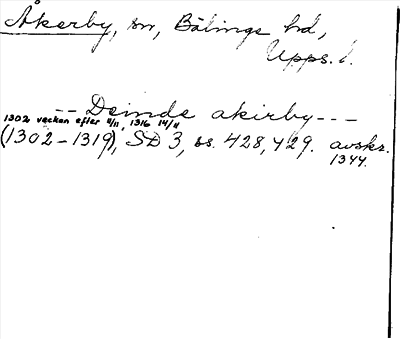 Åkerby, sn, Bälinge hd,
Upps. l.
-- Deinde akirby ---
1302 veckan efter 11/11, 1316 14/11
(1302-1319), SD 3, ss. 428, 429. avskr.
1344.